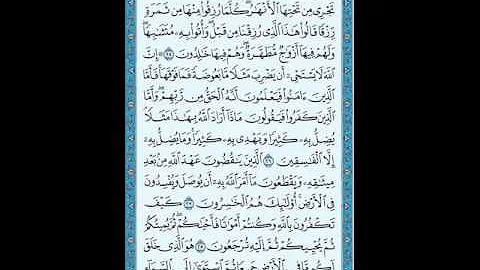 تَجْرِى مِن تَحْتِهَا ٱلْأَنْهَٰرُ ۖ كُلَّمَا رُزِقُوا۟ مِنْهَا مِن ثَمَرَةٍ
رِّزْقًا ۙ قَالُوا۟ هَٰذَا ٱلَّذِى رُزِقْنَا مِن قَبْلُ ۖ وَأُتُوا۟ بِهِۦ مُتَشَٰبِهًا ۖ
وَلَهُمْ فِيهَآ أَزْوَٰجٌ مُّطَهَّرَةٌ ۖ وَهُمْ فِيهَا خَٰلِدُونَ ۝٢٥ إِنَّ
ٱللَّهَ لَا يَسْتَحْىِۦٓ أَن يَضْرِبَ مَثَلًا مَّا بَعُوضَةً فَمَا فَوْقَهَا ۚ فَأَمَّا
ٱلَّذِينَ ءَامَنُوا۟ فَيَعْلَمُونَ أَنَّهُ ٱلْحَقُّ مِن رَّبِّهِمْ ۖ وَأَمَّا
ٱلَّذِينَ كَفَرُوا۟ فَيَقُولُونَ مَاذَآ أَرَادَ ٱللَّهُ بِهَٰذَا مَثَلًا ۘ
يُضِلُّ بِهِۦ كَثِيرًا وَيَهْدِى بِهِۦ كَثِيرًا ۚ وَمَا يُضِلُّ بِهِۦٓ
إِلَّا ٱلْفَٰسِقِينَ ۝٢٦ ٱلَّذِينَ يَنقُضُونَ عَهْدَ ٱللَّهِ مِنۢ بَعْدِ
مِيثَٰقِهِۦ وَيَقْطَعُونَ مَآ أَمَرَ ٱللَّهُ بِهِۦٓ أَن يُوصَلَ وَيُفْسِدُونَ
فِى ٱلْأَرْضِ ۚ أُو۟لَٰٓئِكَ هُمُ ٱلْخَٰسِرُونَ ۝٢٧ كَيْفَ
تَكْفُرُونَ بِٱللَّهِ وَكُنتُمْ أَمْوَٰتًا فَأَحْيَٰكُمْ ۖ ثُمَّ يُمِيتُكُمْ
ثُمَّ يُحْيِيكُمْ ثُمَّ إِلَيْهِ تُرْجَعُونَ ۝٢٨ هُوَ ٱلَّذِى خَلَقَ
لَكُم مَّا فِى ٱلْأَرْضِ جَمِيعًا ثُمَّ ٱسْتَوَىٰٓ إِلَى ٱلسَّمَآءِ